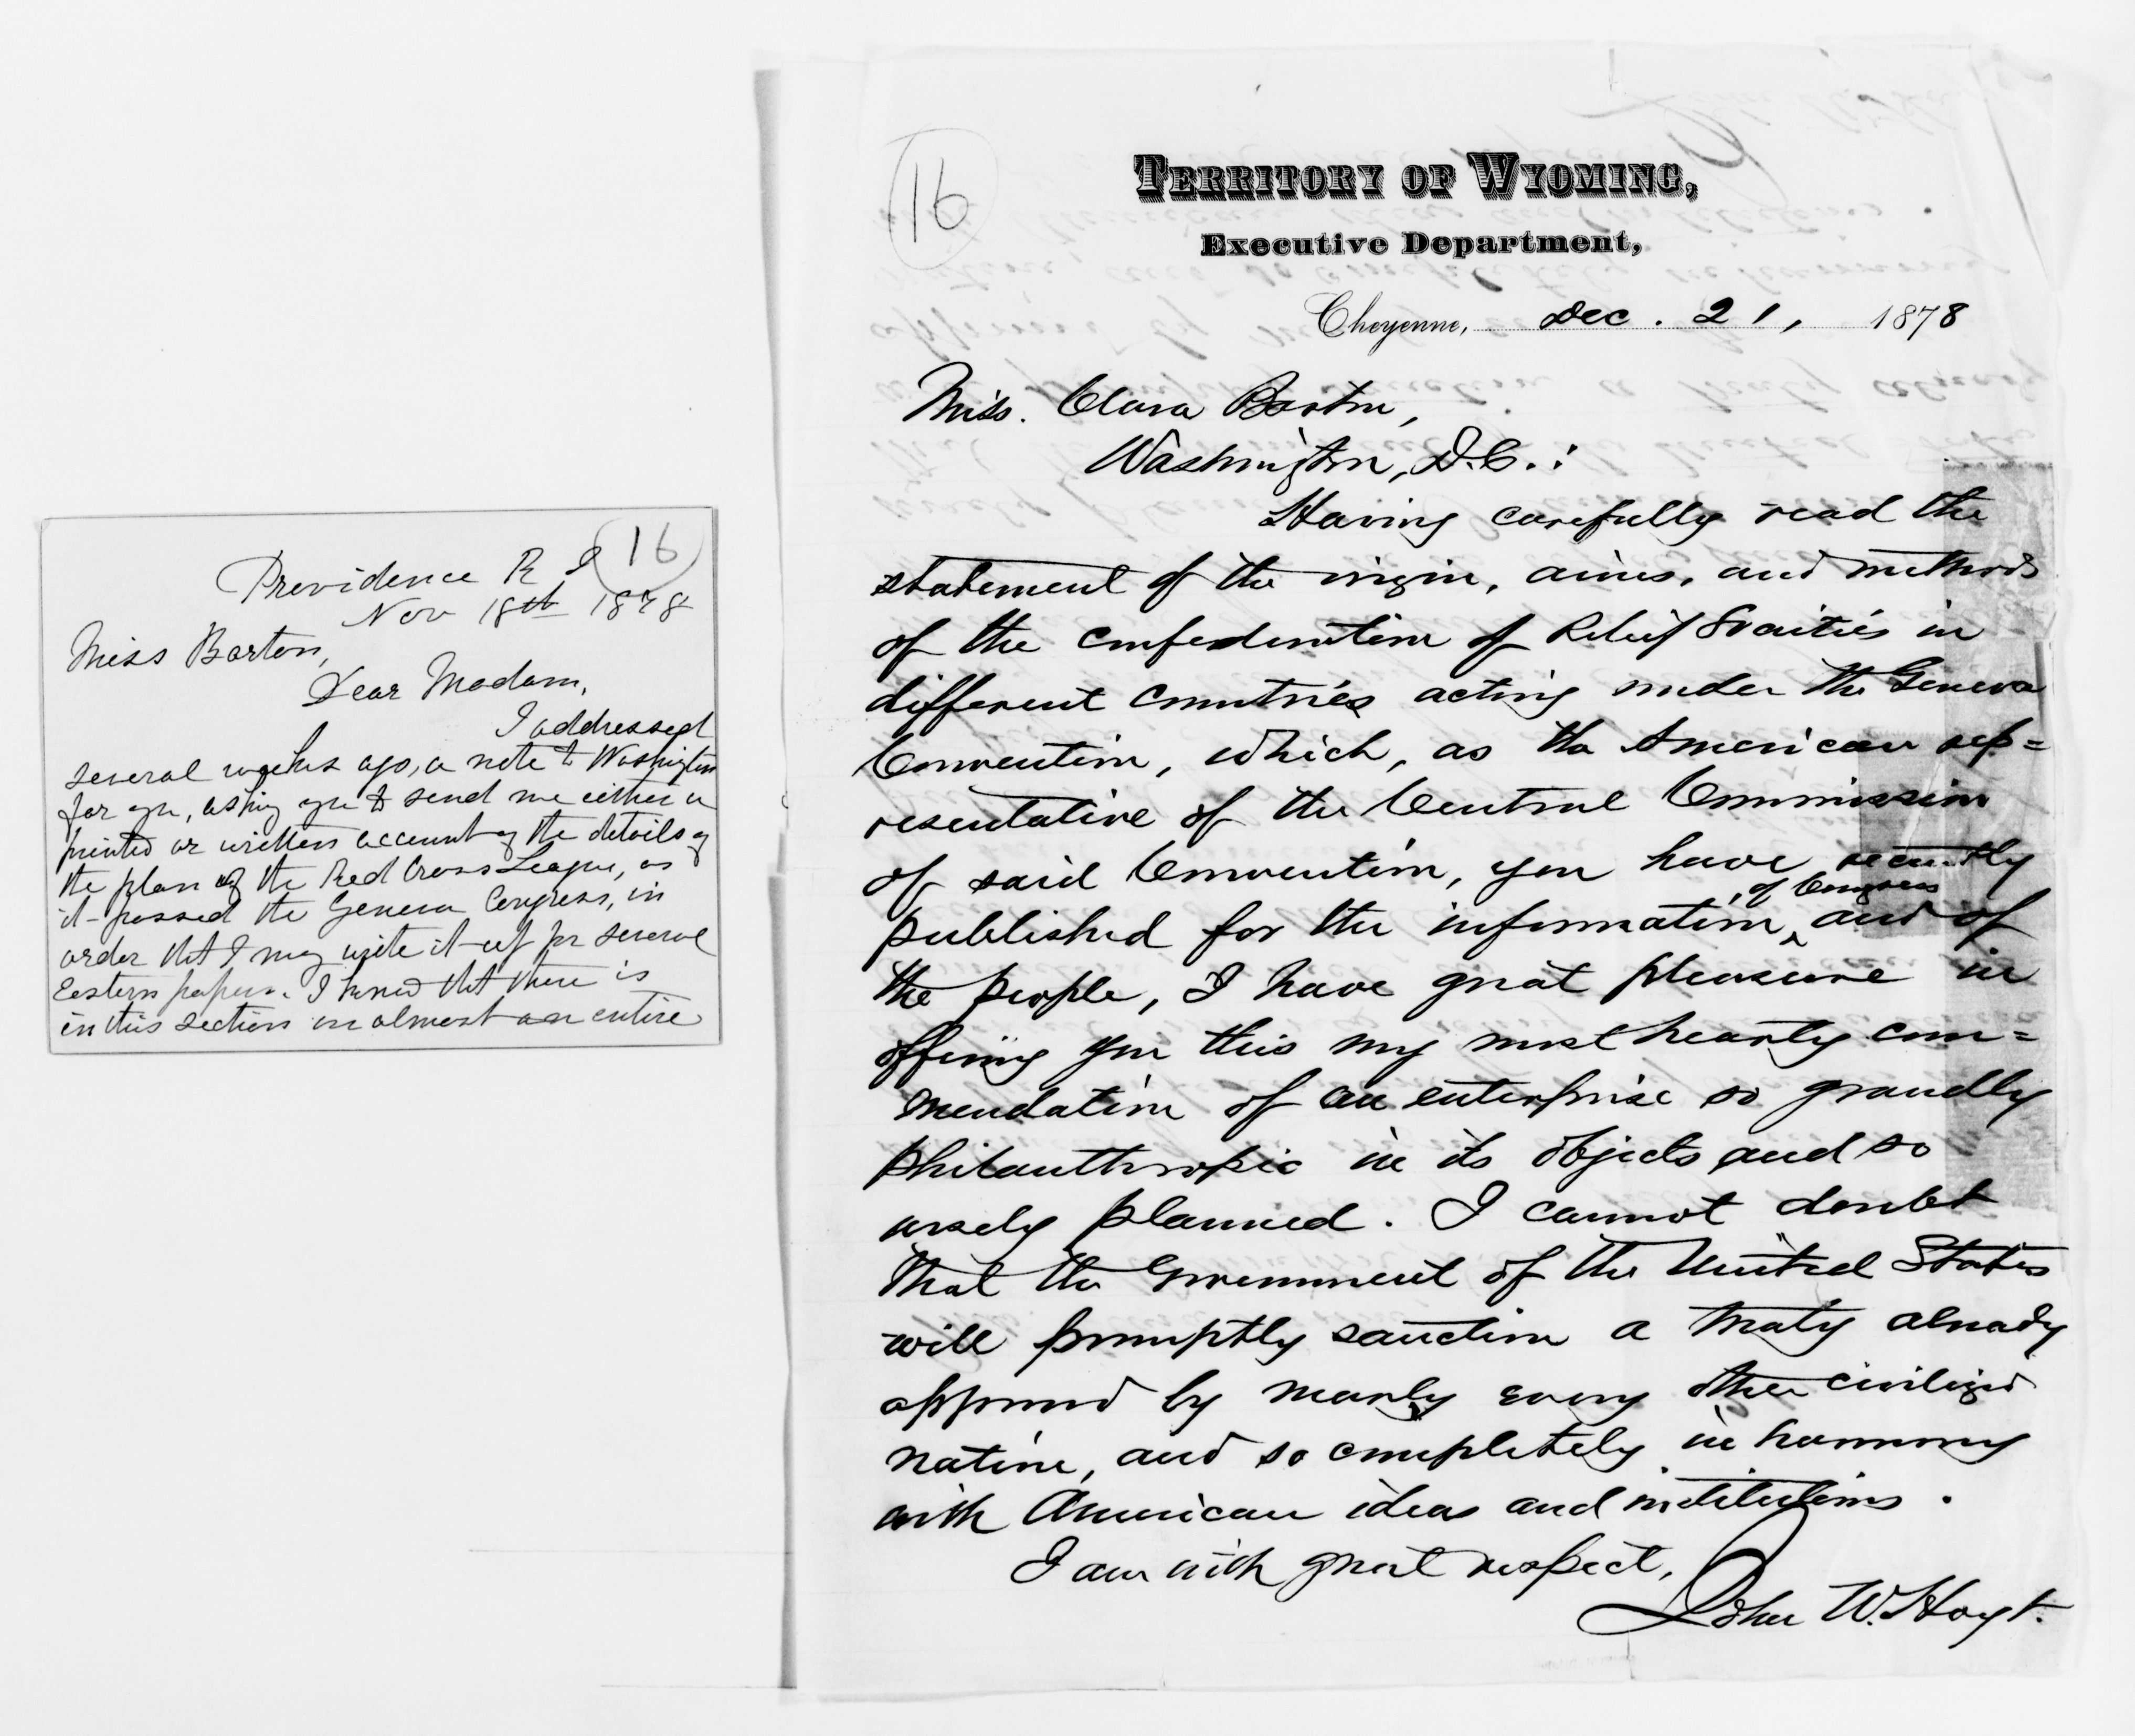 16
Providence R I
Nov 18th 1878
Miss Barton,
Dear Madam,
I addressed
several weeks ago, a note to Washington
for you, asking you to send me either a
printed or written account of the details of
the plan of the Red Cross League, as
it passed the Geneva Congress, in
order that I may write it up for several
Eastern papers. I know that there is
in this section an almost an entire
16
TERRITORY OF WYOMING,
Executive Department,
Cheyenne, Dec. 21, 1878
Miss. Clara Barton,
Washington, D.C.:
Having carefully read the
statement of the origin, aims, and methods
of the confederation of Relief Societies in
different countries acting under the Geneva
Convention, which, as the American rep=
resentative of the Central Commission
of said Convention, you have recently
published for the information of Congress and of
the people, I have great pleasure in
offering you this my most hearty com=
mendation of an enterprise so grandly
philanthropic in its objects and so
wisely planned. I cannot doubt
that the Government of the United States
will promptly sanction a treaty already
approved by nearly every other civilized
nation, and so completely in harmony
with American ideas and institutions.
I am with great respect,
John W. Hoyt.